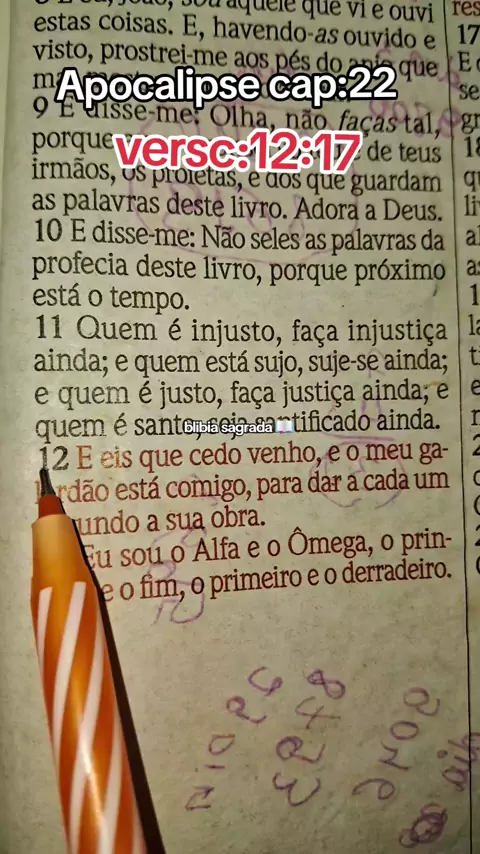 que vi e ouvi
estas coisas. E, havendo-as ouvido e
visto, prostrei-me aos pés do anjo que
Apocalipse cap:22
9 E disse-me: Olha, não faças tal,
versc:12:17
porque de teus
irmãos, os profetas, e dos que guardam
as palavras deste livro. Adora a Deus.
10 E disse-me: Não seles as palavras da
profecia deste livro, porque próximo
está o tempo.
11 Quem é injusto, faça injustiça
ainda; e quem está sujo, suje-se ainda;
e quem é justo, faça justiça ainda; e
quem é santo, seja santificado ainda.
blibia sagrada 📖
12 E eis que cedo venho, e o meu ga-
rdão está comigo, para dar a cada um
undo a sua obra.
Eu sou o Alfa e o Ômega, o prin-
e o fim, o primeiro e o derradeiro.
17